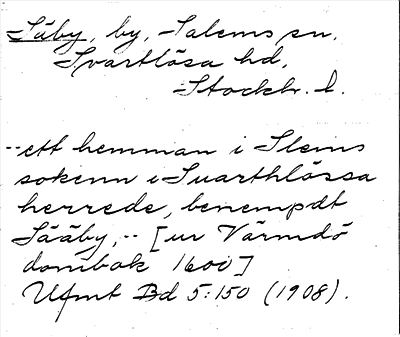 Säby, by, Salems sn,
Svartlösa hd,
Stockh. l.
--ett hemman i Slems
sokenn i Suarthlössa
herrede, benempdt
Sääby, -- [ur Värmdö
dombok 1600]
Ufmt Bd 5:150 (1908).